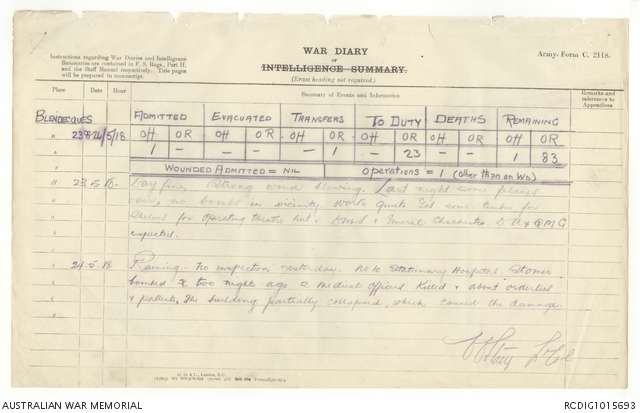 WAR DIARY
OF
INTELLIGENCE SUMMARY.
(Erase heading not required.)
Army Form C. 2118.
Instructions regarding War Diaries and Intelligence
Summaries are contained in F. S. Regs., Part II.
and the Staff Manual respectively. Title pages
will be prepared in manuscript.
Place Date Hour Summary of Events and Information Remarks and references to Appendices
BLENDECQUES ADMITTED EVACUATED TRANSFERS TO DUTY DEATHS REMAINING
OH OR OH OR OH OR OH OR OH OR OH OR
23 24/5/18 1 - - - - 1 - 23 - - 1 83
WOUNDED ADMITTED = NIL OPERATIONS = 1 (other than on Wd)
23.5.18 Day fine, strong wind blowing. Last night some planes
no bombs in vicinity works quiet. Got some timber for
for operating theatre hut. D A & Q M G
expected.
24.5.18 Raining. No inspection yesterday. No 10 Stationary Hospital St Omer
bombed two nights ago 2 medical officers killed & about orderlies
& patients. The building partially collapsed, which caused the damage.
Lt Col
AUSTRALIAN WAR MEMORIAL
RCDIG1015693